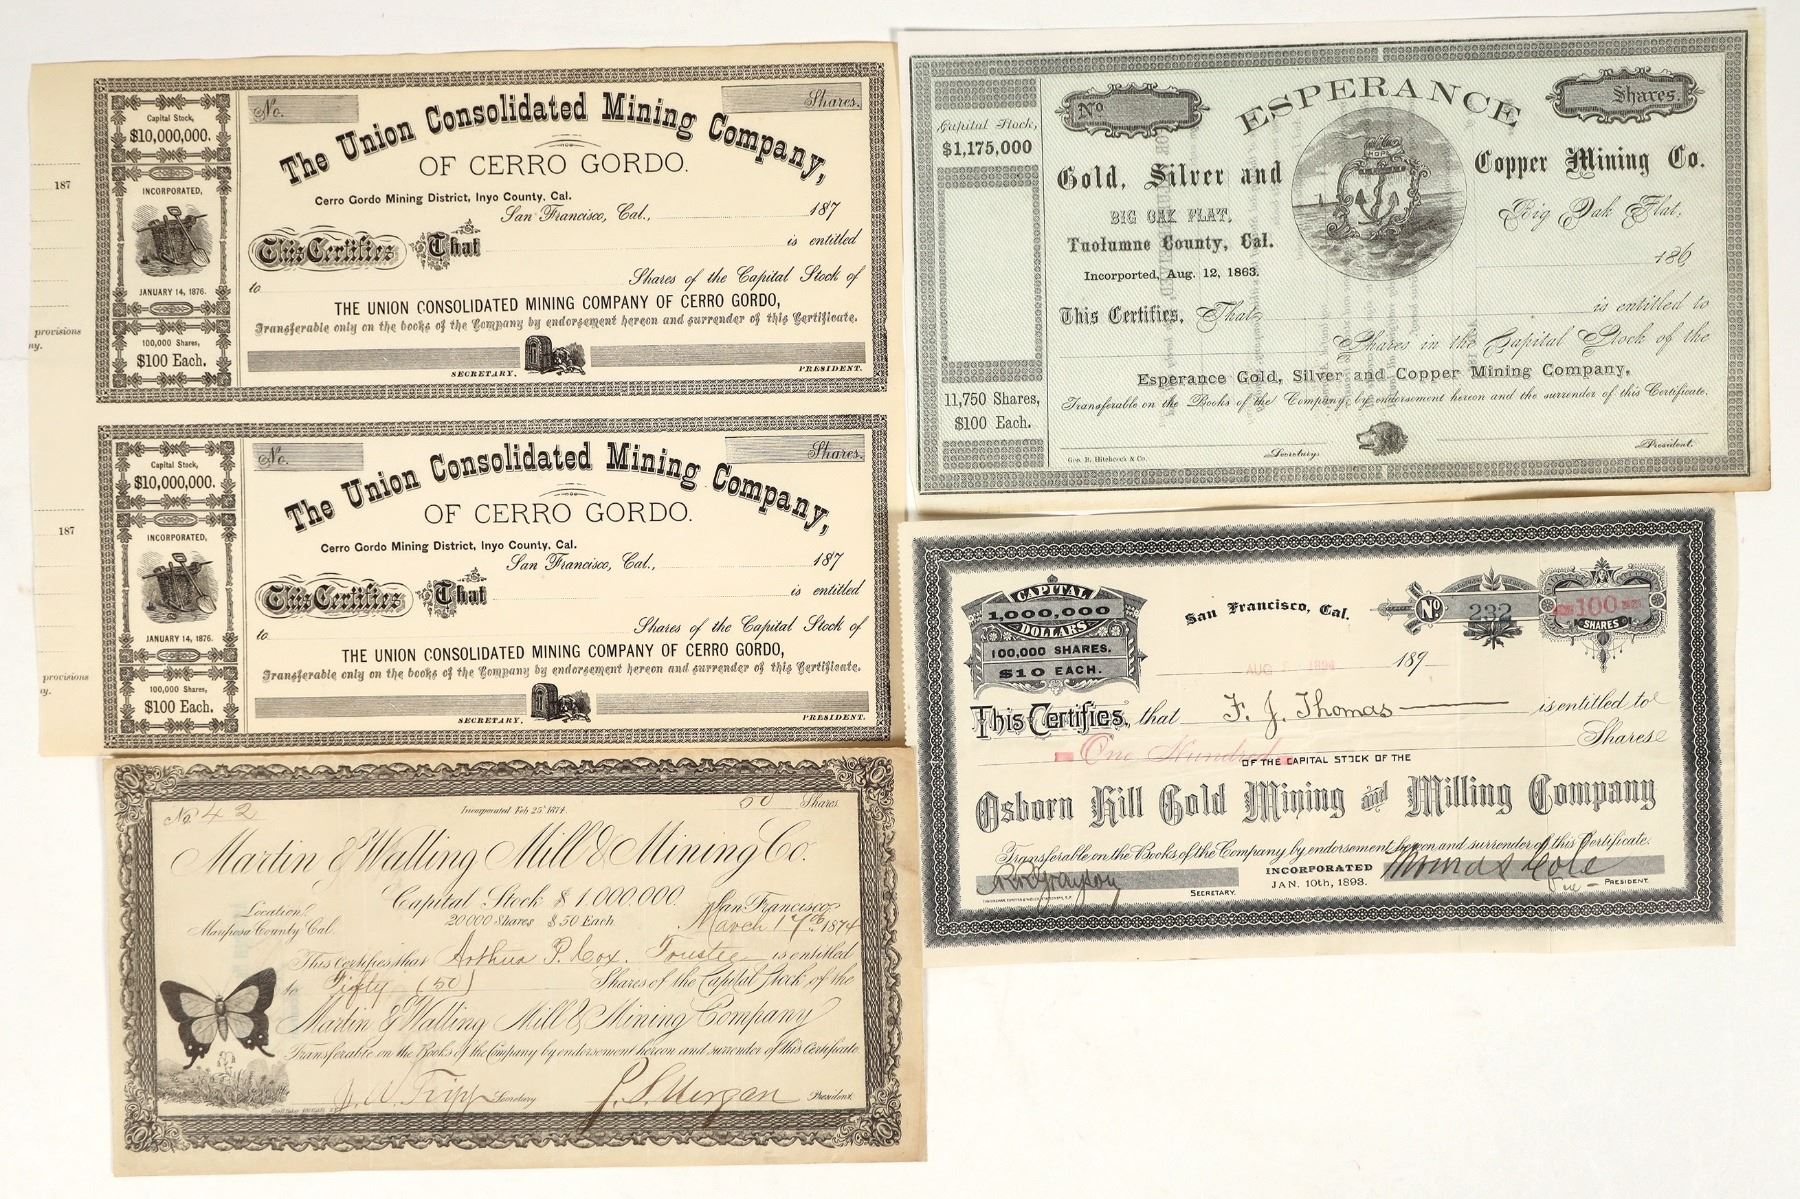 Capital Stock,
$10,000,000.
INCORPORATED,
JANUARY 14, 1876.
100,000 Shares,
$100 Each.
187
provisions
ny.
No.
Shares.
The Union Consolidated Mining Company,
OF CERRO GORDO.
Cerro Gordo Mining District, Inyo County, Cal.
San Francisco, Cal., 187
This Certifies That is entitled
to Shares of the Capital Stock of
THE UNION CONSOLIDATED MINING COMPANY OF CERRO GORDO,
Transferable only on the books of the Company by endorsement hereon and surrender of this Certificate.
SECRETARY. PRESIDENT.
Capital Stock,
$10,000,000.
INCORPORATED,
JANUARY 14, 1876.
100,000 Shares,
$100 Each.
187
provisions
ny.
No.
Shares.
The Union Consolidated Mining Company,
OF CERRO GORDO.
Cerro Gordo Mining District, Inyo County, Cal.
San Francisco, Cal., 187
This Certifies That is entitled
to Shares of the Capital Stock of
THE UNION CONSOLIDATED MINING COMPANY OF CERRO GORDO,
Transferable only on the books of the Company by endorsement hereon and surrender of this Certificate.
SECRETARY. PRESIDENT.
Capital Stock,
$1,175,000
11,750 Shares,
$100 Each.
No
Shares.
ESPERANCE
HOPE
Gold, Silver and Copper Mining Co.
BIG OAK FLAT,
Tuolumne County, Cal.
Incorporated, Aug. 12, 1863.
Big Oak Flat,
186
This Certifies, That is entitled to
Shares in the Capital Stock of the
Esperance Gold, Silver and Copper Mining Company,
Transferable on the Books of the Company, by endorsement hereon and the surrender of this Certificate.
Geo. B. Hitchcock & Co.
Secretary. President.
CAPITAL
1,000,000
DOLLARS
100,000 SHARES.
$10 EACH.
San Francisco, Cal.
No 232
100
SHARES
AUG 1894 189
This Certifies, that F. J. Thomas is entitled to
One Hundred Shares
OF THE CAPITAL STOCK OF THE
Osborn Hill Gold Mining and Milling Company
Transferable on the Books of the Company by endorsement hereon and surrender of this Certificate.
INCORPORATED
JAN. 10th, 1893.
Grayson SECRETARY.
Thomas Cole PRESIDENT.
No. 42
Incorporated Feb 25th 1874.
50 Shares
Martin & Walling Mill & Mining Co.
Capital Stock $1.000.000.
20000 Shares $50 Each
Location
Mariposa County Cal.
San Francisco
March 17th 1874
This Certifies that Arthur P. Cox. Trustee is entitled
to Fifty (50) Shares of the Capital Stock of the
Martin & Walling Mill & Mining Company
Transferable on the Books of the Company by endorsement hereon and surrender of this Certificate.
J. W. Tripp Secretary
President